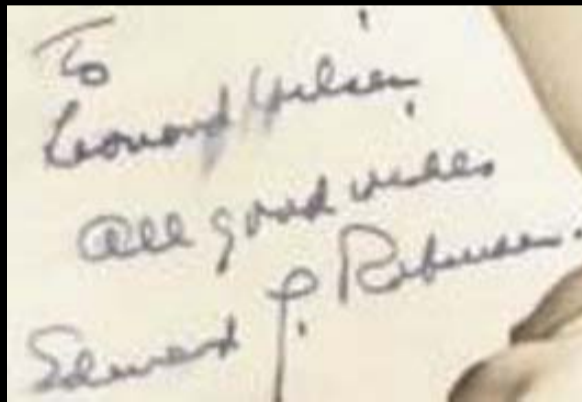 To
Leonard Wilson,
All good wishes
Edward G. Robinson.